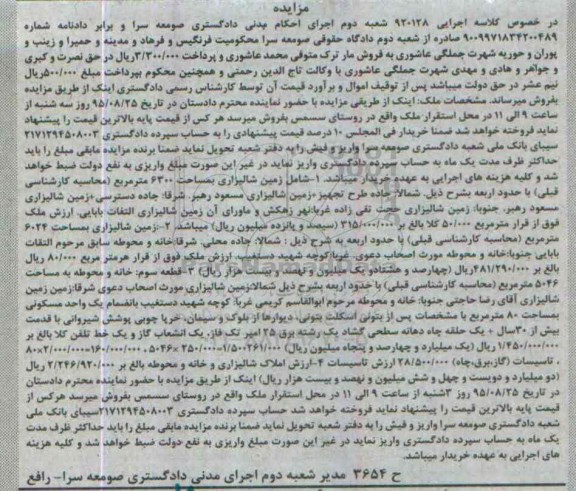 مزایده
در خصوص کلاسه اجرایی ۹۲۰۱۲۸ شعبه دوم اجرای احکام مدنی دادگستری صومعه سرا و برابر دادنامه شماره
۹۰۰۹۹۷۱۸۳۴۲۰۰۴۸۹ صادره از شعبه دوم دادگاه حقوقی صومعه سرا محکومیت فرنگیس و فرهاد و مدینه و حمیرا و زینب و
پوران و حوریه شهرت جملگی عاشوری به فروش مار ترک متوفی محمد عاشوری و پرداخت ۳/۳۰۰/۰۰۰ریال در حق نصرت و کبری
و جواهر و هادی و مهدی شهرت جملگی عاشوری با وکالت تاج الدین رحمتی و همچنین محکوم بپرداخت مبلغ ۵۰۰/۰۰۰ریال
نیم عشر در حق دولت میباشد پس از توقیف اموال و برآورد قیمت آن توسط کارشناس رسمی دادگستری اینک از طریق مزایده
بفروش میرساند. مشخصات ملک: اینک از طریقی مزایده با حضور نماینده محترم دادستان در تاریخ ۹۵/۰۸/۲۵ روز سه شنبه از
ساعت ۹ الی ۱۱ در محل استقرار ملک واقع در روستای سسمس بفروش میرسد هر کس از قیمت پایه بالاترین قیمت را پیشنهاد
نماید فروخته خواهد شد ضمنا خریدار فی المجلس ۱۰ درصد قیمت پیشنهادی را به حساب سپرده دادگستری ۲۱۷۱۲۹۴۵۰۸۰۰۳
سیبای بانک ملی شعبه دادگستری صومعه سرا واریز و فیش را به دفتر شعبه تحویل نماید ضمنا برنده مزایده مابقی مبلغ را باید
حداکثر ظرف مدت یک ماه به حساب سپرده دادگستری واریز نماید در غیر این صورت مبلغ واریزی به نفع دولت ضبط خواهد
شد و کلیه هزینه های اجرایی به عهده خریدار میباشد. ۱-شامل زمین شالیزاری بمساحت ۶۳۰۰ مترمربع (محاسبه کارشناسی
قبلی) با حدود اربعه بشرح ذیل. شمالا: جاده طرح تجهیز +زمین شالیزاری مسعود رهبر. شرقا: جاده دسترسی+زمین شالیزاری
مسعود رهبر. جنوبا: زمین شالیزاری حجت تقی زاده غربا:نهر زهکش و ماورای آن زمین شالیزاری التفات بابایی. ارزش ملک
فوق از قرار مترمربع ۵۰/۰۰۰ کلا بالغ بر ۳۱۵/۰۰۰/۰۰۰ (سیصد و پانزده میلیون ریال) میباشد. ۲-:زمین شالیزاری بمساحت ۶۰۲۴
مترمربع (محاسبه کارشناسی قبلی) با حدود اربعه به شرح ذیل : شمالا: جاده محلی. شرقا:خانه و محوطه سابق مرحوم التفات
بابایی جنوبا:خانه و محوطه مورث اصحاب دعوی. غربا:کوچه شهید دستغیب. ارزش ملک فوق از قرار هرمتر مربع ۸۰/۰۰۰ ریال
بالغ بر ۴۸۱/۲۹۰/۰۰۰ریال (چهارصد و هشتادو یک میلیون و نهصد و بیست هزار ریال) ۳-قطعه سوم: خانه و محوطه به مساحت
۵۰۴۶ مترمربع (محاسبه کارشناسی قبلی) با حدود اربعه بشرح ذیل شمالا:زمین شالیزاری مورث اصحاب دعوی شرقا:زمین زمین
شالیزاری آقای رضا حاجتی جنوبا: خانه و محوطه مرحوم ابوالقاسم کریمی غربا: کوچه شهید دستغیب بانضمام یک واحد مسکونی
بمساحت ۸۰ مترمربع با مشخصات پس از بتونی اسکلت بتونی، دیوارها از بلوک و سیمان، خرپا چوبی پوشش شیروانی با قدمت
بیش از ۳۰سال + یک حلقه چاه دهانه سطحی گشاد یک رشته برق ۲۵ امپر تک فاز، یک انشعاب گاز و یک خط تلفن کلا بالغ بر
۱/۴۵۰/۰۰۰/۰۰۰ ریال (یک میلیارد و چهارصد و پنجاه میلیون ریال) ۱/۵۰۰۲۶۱/۰۰۰=۲۵۰/۰۰۰×۵۰۴۶ ، ۱۶۰/۰۰۰/۰۰۰=۲/۰۰۰/۰۰۰×۸۰
، تاسیسات (گاز،برق،چاه) ۲۸/۵۰۰/۰۰۰ ارزش تاسیسات ۴-ارزش املاک شالیزاری و خانه و محوطه بالغ بر ۲/۲۴۶/۹۲۰/۰۰۰ ریال
(دو میلیارد و دویست و چهل و شش میلیون و نهصد و بیست هزار ریال) اینک از طریق مزایده با حضور نماینده محترم دادستان
در تاریخ ۹۵/۰۸/۲۵ روز ۳شنبه از ساعت ۹ الی ۱۱ در محل استقرار ملک واقع در روستای سسمس بفروش میرسد هرکس از
قیمت پایه بالاترین قیمت را پیشنهاد نماید فروخته خواهد شد حساب سپرده دادگستری ۲۱۷۱۲۹۴۵۰۸۰۰۳سیبای بانک ملی
شعبه دادگستری صومعه سرا واریز و فیش را به دفتر شعبه تحویل نماید ضمنا برنده مزایده مابقی مبلغ را باید حداکثر ظرف مدت
یک ماه به حساب سپرده دادگستری واریز نماید در غیر این صورت مبلغ واریزی به نفع دولت ضبط خواهد شد و کلیه هزینه
های اجرایی به عهده خریدار میباشد.
ح ۳۶۵۴ مدیر شعبه دوم اجرای مدنی دادگستری صومعه سرا- رافع